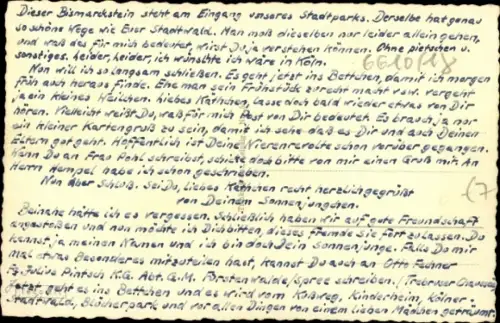 Dieser Bismarckstein steht am Eingang unseres Stadtparks. Derselbe hat genau
so schöne Wege wie Euer Stadtwald. Man muß dieselben nur leider allein gehen,
und was das für mich bedeutet, wirst Du ja verstehen können. Ohne pietschen u.
sonstiges. Leider, leider, ich wünschte ich wäre in Köln.
6610/18
Nun will ich so langsam schließen. Es geht jetzt ins Bettchen, damit ich morgen
früh auch heraus finde. Ehe man sein Frühstück zurecht macht usw. vergeht
ja ein kleines Weilchen. Liebes Käthchen, lasse doch bald wieder etwas von Dir
hören. Vielleicht weißt Du, was für mich Post von Dir bedeutet. Es brauch ja nur
ein kleiner Kartengruß zu sein, damit ich sehe daß es Dir und auch Deinen
Eltern gut geht. Hoffentlich ist Deine Nierenrevolte schon vorüber gegangen.
Wenn Du an Frau Pohl schreibst, schicke doch bitte von mir einen Gruß mit. An
Herrn Hempel habe ich schon geschrieben.
Nun aber Schluß. Sei Du, liebes Käthchen recht herzlich gegrüßt
von Deinem Sonnenjungchen.
(7
Beinahe hätte ich es vergessen. Schließlich haben wir auf gute Freundschaft
angestoßen und nun möchte ich Dich bitten, dieses fremde Sie fort zu lassen. Du
kennst ja meinen Namen und ich bin doch Dein Sonnenjunge. Falls Du mir
mal etwas Besonderes mitzuteilen hast, kannst Du auch an Otto Fechner
Fa. Julius Pintsch K.G. Abt. G.M. Fürstenwalde/Spree schreiben. (Trebuser Chaussee)
Jetzt geht es ins Bettchen und es wird vom Kuhweg, Kinderheim, Kölner
Stadtwald, Blücherpark und vor allen Dingen von einem lieben Mädchen geträumt.